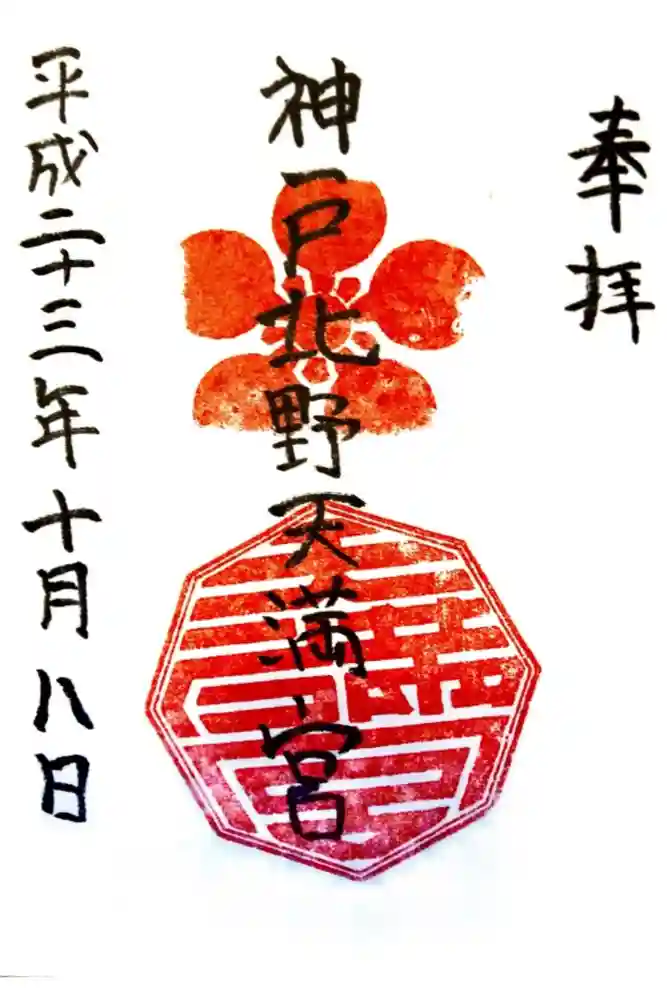 奉拝
神戸北野天満宮
平成二十三年十月八日